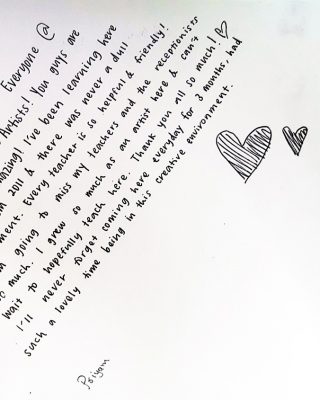 Everyone @
Artists! You guys are
amazing! I've been learning here
2011 & there was never a dull
ment. Every teacher is so helpful & friendly!
going to miss my teachers and the receptionists
so much. I grew so much as an artist here & can't
wait to hopefully teach here. Thank you all so much!
I'll never forget coming here everyday for 3 months, had
such a lovely time being in this creative environment.
Priyam